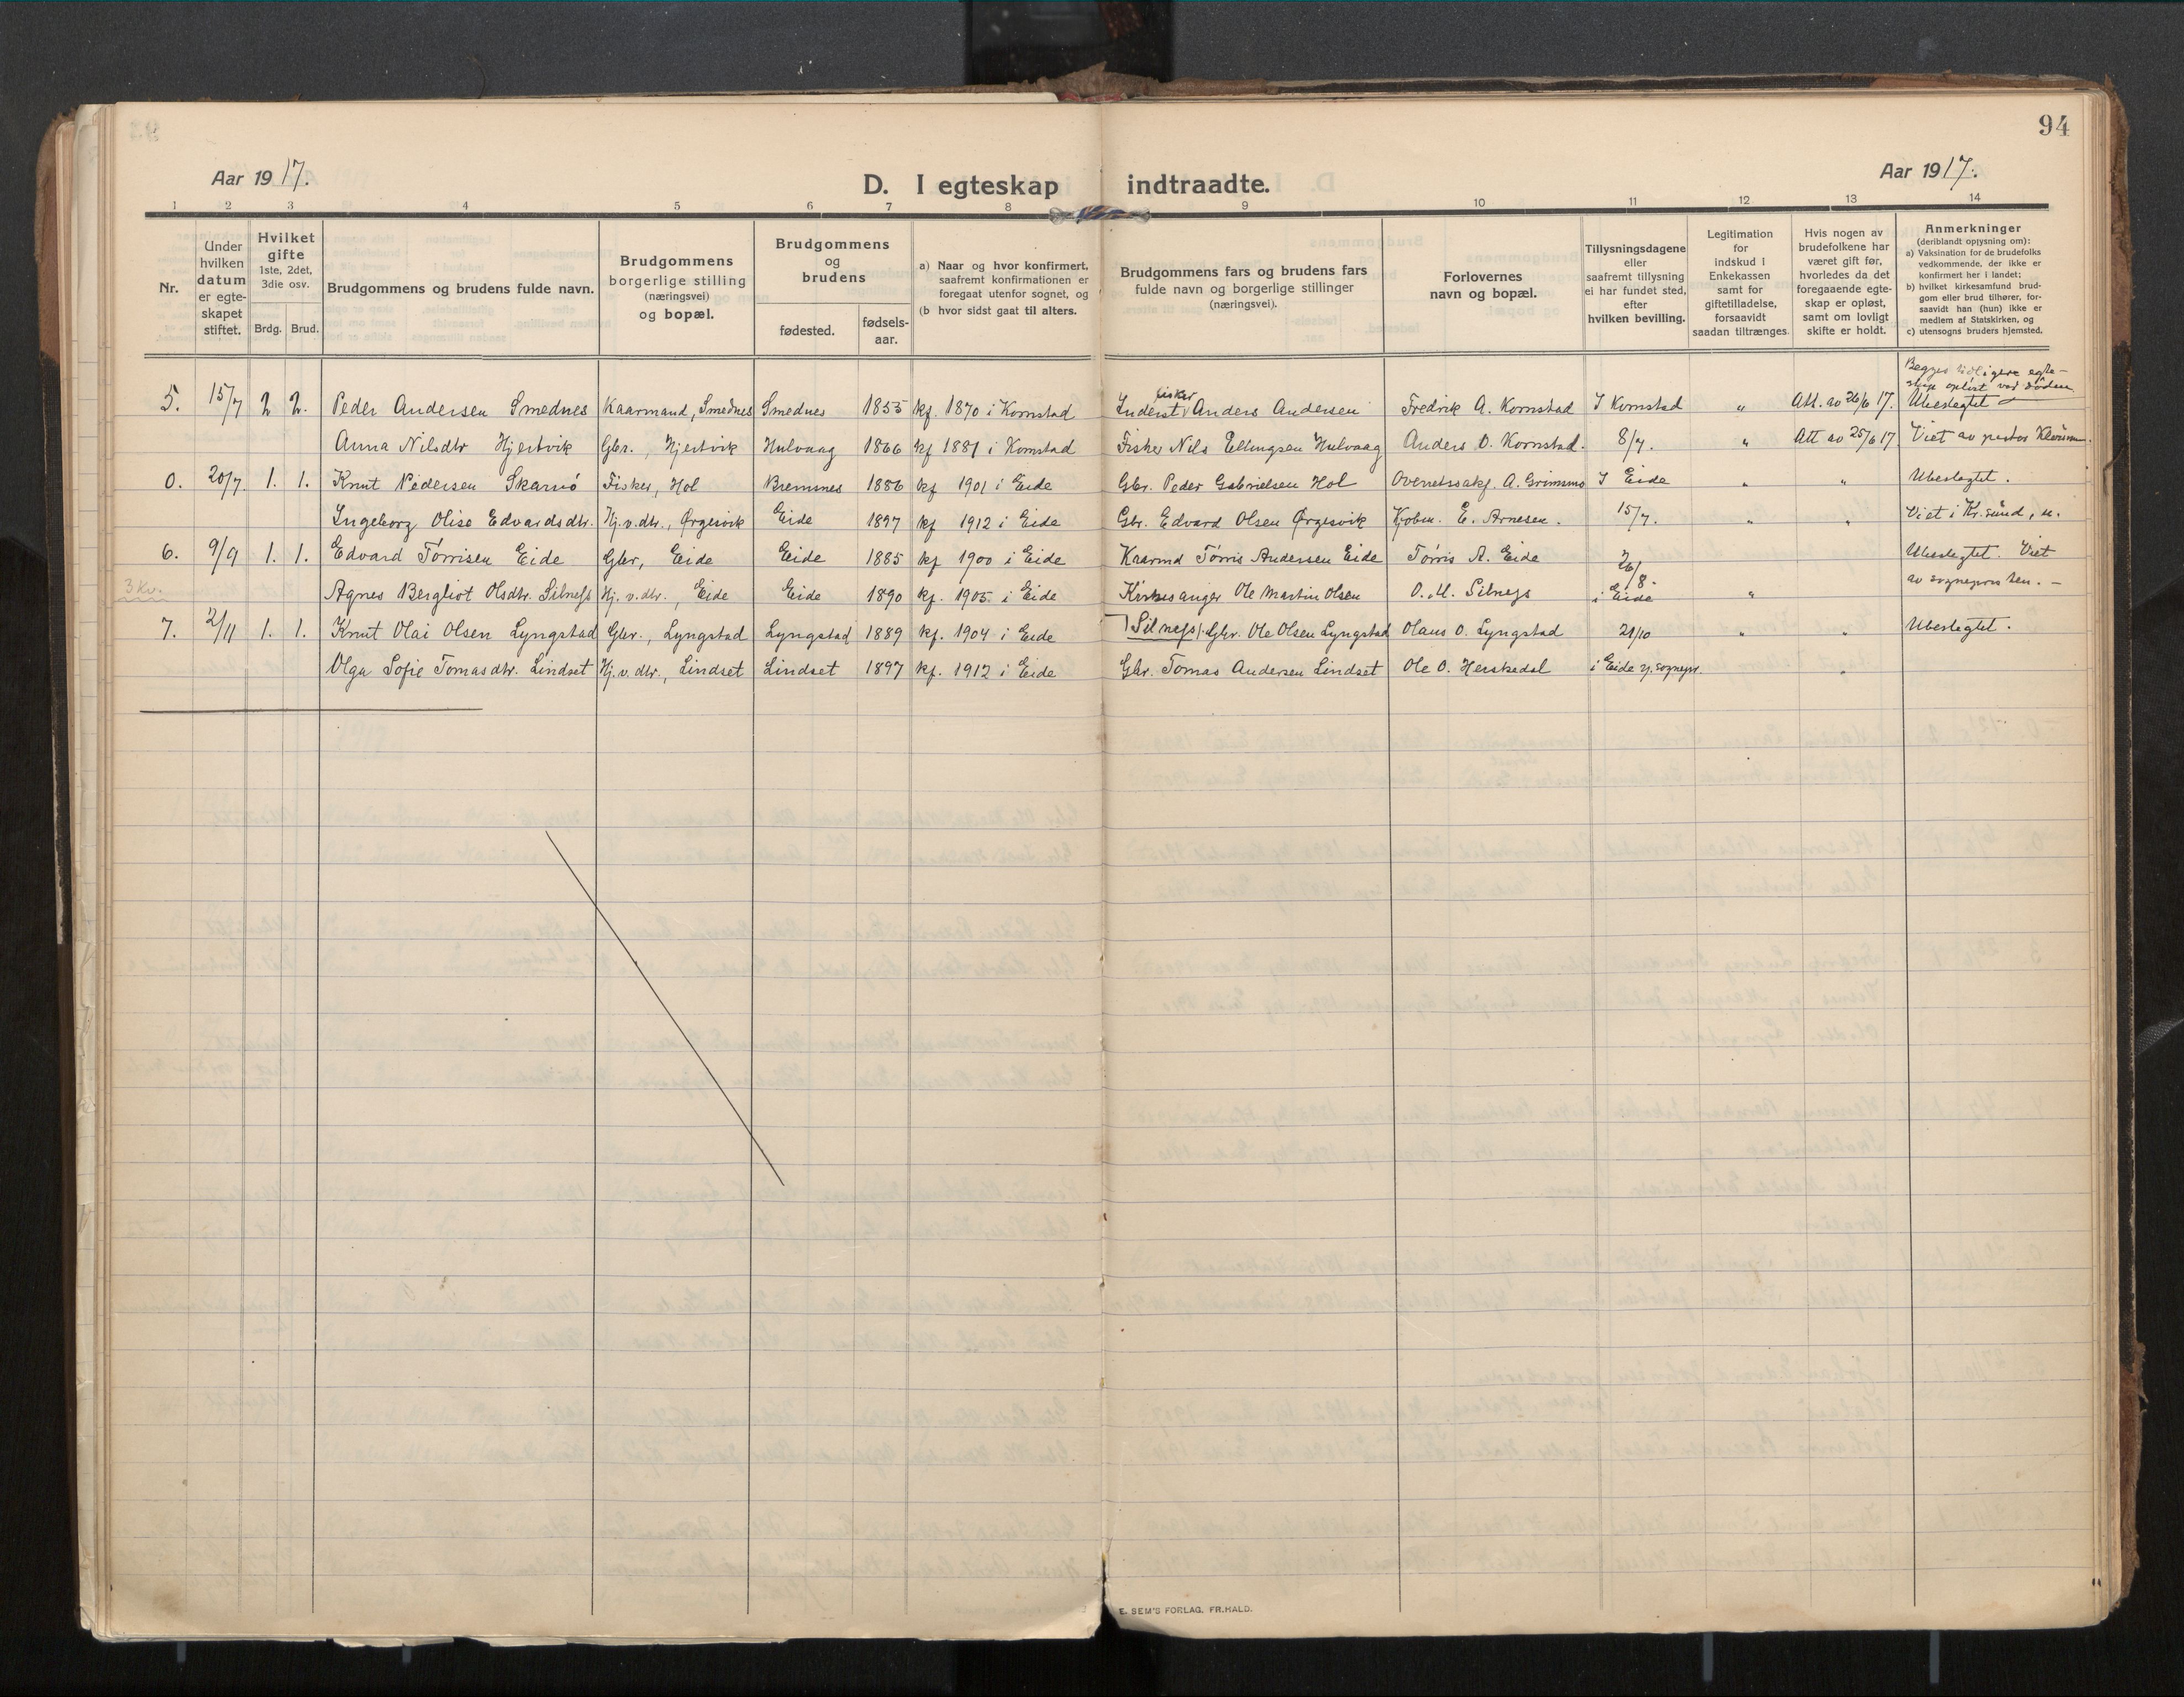 94
Aar 1917.
D. I egteskap indtraadte.
Aar 1917.
1 2 3 4 5 6 7 8 9 10 11 12 13 14
Nr.
Under
hvilken
datum
er egte-
skapet
stiftet.
Hvilket
gifte
1ste, 2det,
3die osv.
Brdg. Brud.
Brudgommens og brudens fulde navn.
Brudgommens
borgerlige stilling
(næringsvei)
og bopæl.
Brudgommens
og
brudens
fødested.
fødsels-
aar.
a) Naar og hvor konfirmert,
saafremt konfirmationen er
foregaat utenfor sognet, og
(b hvor sidst gaat til alters.
Brudgommens fars og brudens fars
fulde navn og borgerlige stillinger
(næringsvei).
Forlovernes
navn og bopæl.
Tillysningsdagene
eller
saafremt tillysning
ei har fundet sted,
efter
hvilken bevilling.
Legitimation
for
indskud i
Enkekassen
samt for
giftetilladelse,
forsaavidt
saadan tiltrænges.
Hvis nogen av
brudefolkene har
været gift før,
hvorledes da det
foregaaende egte-
skap er opløst,
samt om lovligt
skifte er holdt.
Anmerkninger
(deriblandt opjysning om):
a) Vaksination for de brudefolks
vedkommende, der ikke er
konfirmert her i landet;
b) hvilket kirkesamfund brud-
gom eller brud tilhører, for-
saavidt han (hun) ikke er
medlem af Statskirken, og
c) utensogns bruders hjemsted.
Begges tidligere egte-
skap opløst ved døden
5. 15/7 2 2. Peder Andersen Smednes Kaarmand, Smednes Smednes 1855 kf. 1870 i Kornstad Inderst fisker Anders Andersen Fredrik A. Kornstad I Kornstad " Att. av 26/6 17. Ubeslegtet
Anna Nilsdtr Hjertvik Gbr., Hjertvik Hulvaag 1866 kf 1881 i Kornstad Fisker Nils Ellingsen Hulvaag Anders O. Kornstad. 8/7. " Att av 25/6 17 Viet av pastor
0. 20/7. 1. 1. Knut Pedersen Skarsø Fisker, Hol Bremsnes 1886 kf 1901 i Eide Gbr. Peder Gabrielsen Hol Overretssakf. A. Grimsmo I Eide " " Ubeslegtet.
Ingeborg Olise Edvardsdtr. Hj.v.dtr., Ørgesvik Eide 1897 kf 1912 i Eide Gbr. Edvard Olsen Ørgesvik Kjøbm. E. Arnesen. 15/7. " " Viet i Kr.sund, n.
6. 9/9 1. 1. Edvard Tørrisen Eide Gbr, Eide Eide 1885 kf 1900 i Eide Kaarmd Tørris Andersen Eide Tørris A. Eide 26/8. Ubeslegtet. Viet
3 Kv. Agnes Bergliot Olsdtr. Silness Hj. v. dtr., Eide Eide 1890 kf. 1905 i Eide Kirkesanger Ole Martin Olsen O. M. Silness i Eide " av sogneprosten. -
7. 2/11 1. 1. Knut Olai Olsen Lyngstad Gbr., Lyngstad Lyngstad 1889 kf. 1904 i Eide Silness/. Gbr. Ole Olsen Lyngstad Olaus O. Lyngstad 21/10 " " Ubeslegtet.
Olga Sofie Tomasdtr. Lindset Hj. v. dtr., Lindset Lindset 1897 kf. 1912 i Eide Gbr. Tomas Andersen Lindset Ole O. Herskedal i Eide "
E. SEM'S FORLAG, FR.HALD.